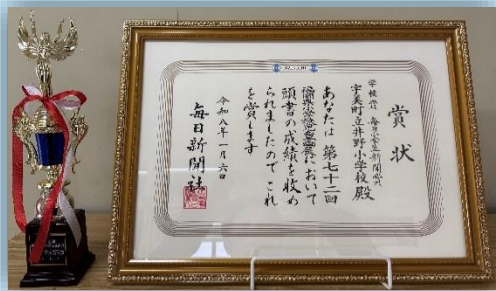 賞状
学校賞 毎日小学生新聞賞
宇美町立井野小学校殿
あなたは 第七十二回
において
頭書の成績を収め
られましたので これ
を賞します
令和八年一月六日
毎日新聞社